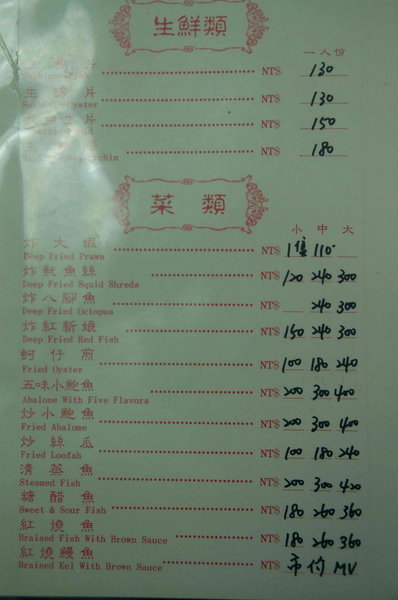 生鮮類
一人份
NT$ 130
生 片
Oyster
NT$ 130
片
NT$ 150
NT$ 180
菜類
小 中 大
炸大蝦
Deep Fried Prawn
NT$ 1隻 110
炸魷魚絲
Deep Fried Squid Shreds
NT$ 120 240 300
炸八腳魚
Deep Fried Octopus
NT$ 240 300
炸紅新娘
Deep Fried Red Fish
NT$ 150 240 300
蚵仔煎
Fried Oyster
NT$ 100 180 240
五味小鮑魚
Abalone With Five Flavors
NT$ 200 300 400
炒小鮑魚
Fried Abalome
NT$ 200 300 400
炒絲瓜
Fried Loofah
NT$ 100 180 240
清蒸魚
Steamed Fish
NT$ 200 300 420
糖醋魚
Sweet & Sour Fish
NT$ 180 260 360
紅燒魚
Braised Fish With Brown Sauce
NT$ 180 260 360
紅燒鰻魚
Braised Eel With Brown Sauce
NT$ 市价 MV